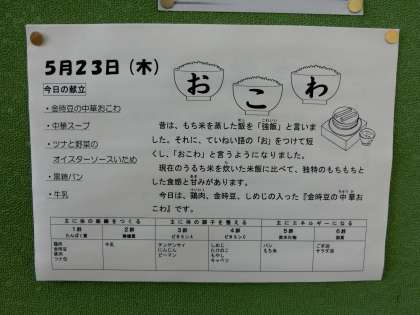 5月23日（木）
おこわ
今日の献立
・金時豆の中華おこわ
・中華スープ
・ツナと野菜の
オイスターソースいため
・黒糖パン
・牛乳
昔は、もち米を蒸した飯を「強飯」と言いま
した。それに、ていねい語の「お」をつけて短
くし、「おこわ」と言うようになりました。
現在のうるち米を炊いた米飯に比べて、独特のもちもちと
した食感と甘みがあります。
今日は、鶏肉、金時豆、しめじの入った『金時豆の中華お
こわ』です。
主に体の基礎をつくる 主に体の調子を整える 主にエネルギーになる
1群 2群 3群 4群 5群 6群
たんぱく質 無機質 ビタミンA ビタミンC 炭水化物 脂質
鶏肉 牛乳 チンゲンサイ しめじ パン ごま油
金時豆 にんじん たけのこ もち米 サラダ油
ピーマン もやし
ツナ缶 キャベツ